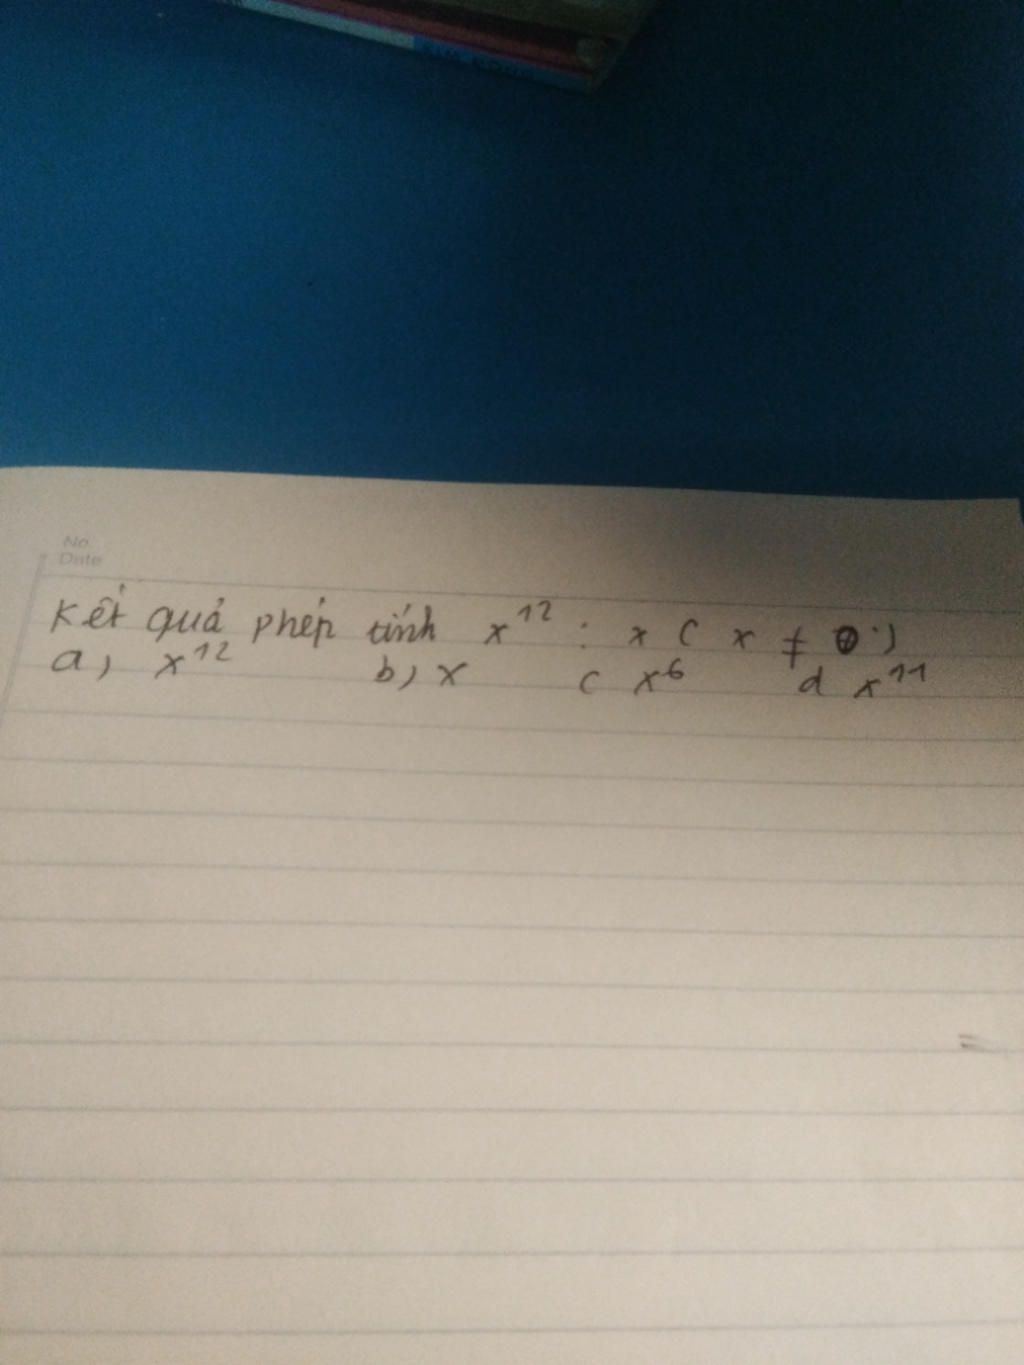 No.
Date
Kết quả phép tính x¹² : x ( x ≠ 0 )
a, x¹² b, x c x⁶ d x¹¹